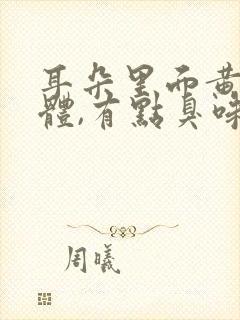 耳朵里面黄
體,有點臭味
周曦